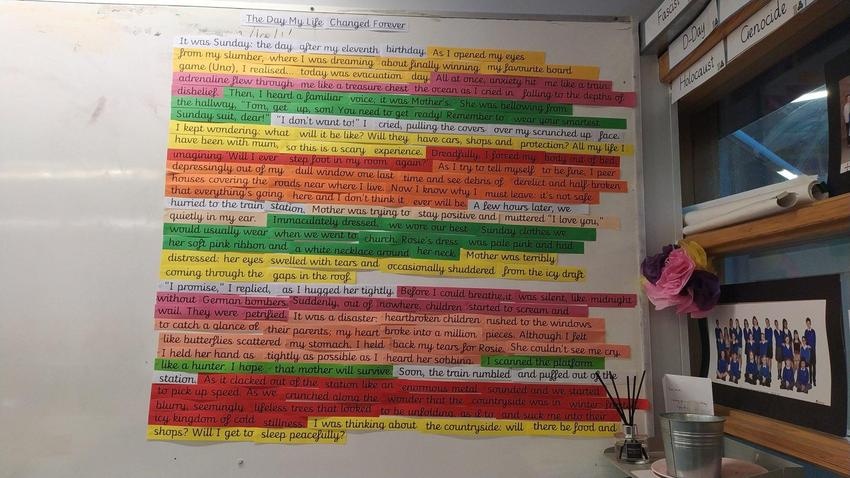 The Day My Life Changed Forever
It was Sunday: the day after my eleventh birthday. As I opened my eyes
from my slumber, where I was dreaming about finally winning my favourite board
game (Uno), I realised... today was evacuation day. All at once, anxiety hit me like a train:
adrenaline flew through me like a treasure chest the ocean as I cried in falling to the depths of
disbelief. Then, I heard a familiar voice, it was Mother's. She was bellowing from
the hallway, "Tom, get up, son! You need to get ready! Remember to wear your smartest
Sunday suit, dear!" "I don't want to!" I cried, pulling the covers over my scrunched up face.
I kept wondering: what will it be like? Will they have cars, shops and protection? All my life I
have been with mum, so this is a scary experience. Dreadfully, I forced my body out of bed,
imagining Will I ever step foot in my room again? As I try to tell myself to be fine, I peer
depressingly out of my dull window one last time and see debris of derelict and half-broken
houses covering the roads near where I live. Now I know why I must leave: it's not safe
that everything's going here and I don't think it ever will be. A few hours later, we
hurried to the train station. Mother was trying to stay positive and muttered "I love you,"
quietly in my ear. Immaculately dressed, we wore our best Sunday clothes we
would usually wear when we went to church. Rosie's dress was pale pink and had
her soft pink ribbon and a white necklace around her neck. Mother was terribly
distressed: her eyes swelled with tears and occasionally shuddered from the icy draft
coming through the gaps in the roof.
"I promise," I replied, as I hugged her tightly. Before I could breathe, it was silent, like midnight
without German bombers. Suddenly, out of nowhere, children started to scream and
wail. They were petrified. It was a disaster: heartbroken children rushed to the windows
to catch a glance of their parents; my heart broke into a million pieces. Although I felt
like butterflies scattered my stomach, I held back my tears for Rosie. She couldn't see me cry.
I held her hand as tightly as possible as I heard her sobbing. I scanned the platform
like a hunter. I hope that mother will survive. Soon, the train rumbled and puffed out of the
station. As it clacked out of the station like an enormous metal sounded and we started
to pick up speed. As we crunched along the wonder that the countryside was in winter
blurry, seemingly lifeless trees that looked to be unfolding, as if to and suck me into their
icy kingdom of cold stillness. I was thinking about the countryside: will there be food and
shops? Will I get to sleep peacefully?
Fascist
D-Day
Genocide
Holocaust